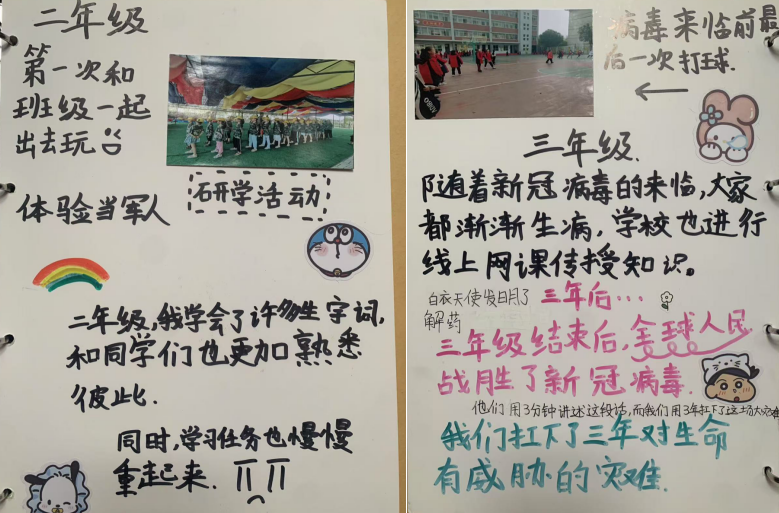 二年级
第一次和
班级一起
出去玩
研学活动
体验当军人
二年级,我学会了许多生字词,
和同学们也更加熟悉
彼此.
同时,学习任务也慢慢
重起来.
病毒来临前最
后一次打球.
三年级.
随着新冠病毒的来临,大家
都渐渐生病,学校也进行
线上网课传授知识。
白衣天使发明了
解药
三年后...
三年级结束后,全球人民
战胜了新冠病毒.
他们用3分钟讲述这段话,而我们用3年扛下了这场大
我们扛下了三年对生命
有威胁的灾难.